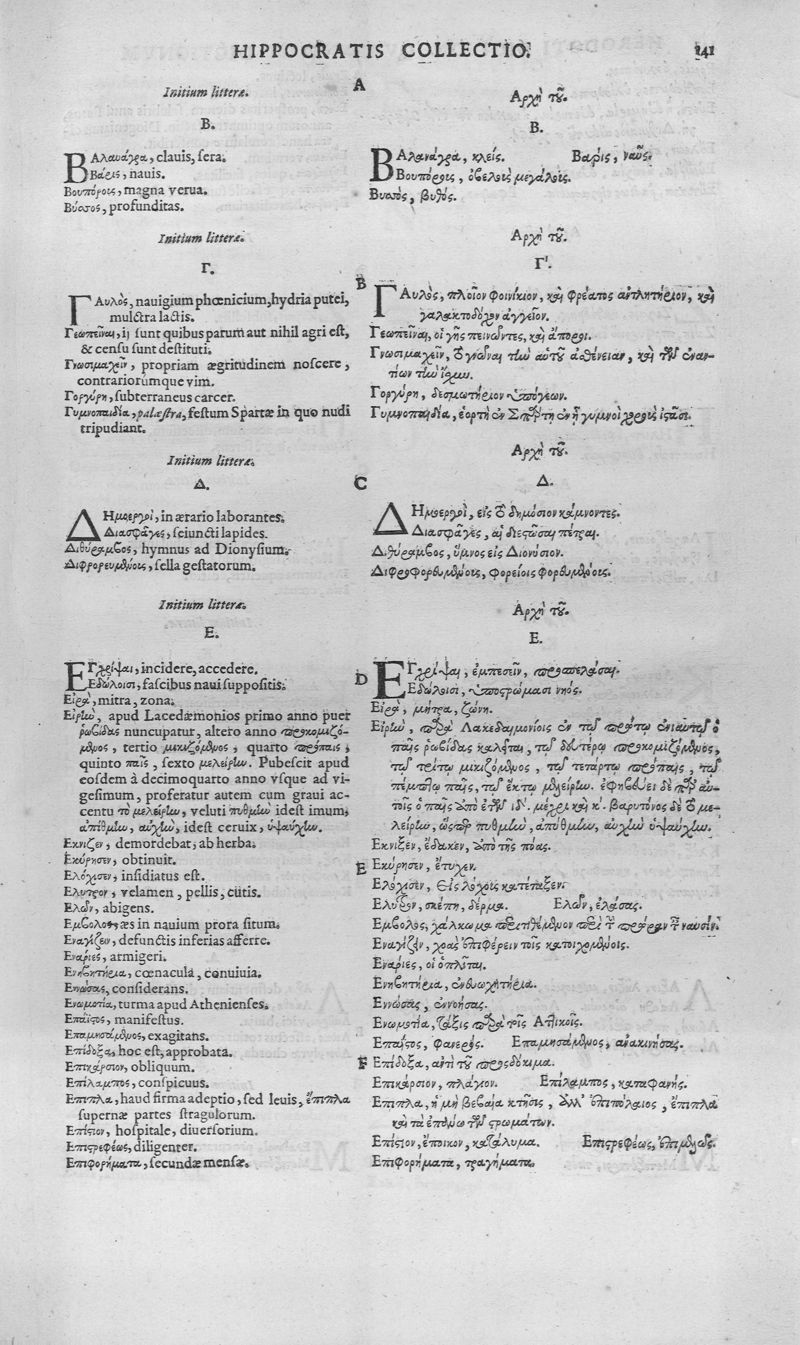 HIPPOCRATIS COLLECTIO. 241
A
Initium litteræ.
B.
BΑλανάγρα, clauis, sera.
Βάρις, nauis.
Βουπόροις, magna verua.
Βύσσος, profunditas.
Initium litteræ.
Γ.
ΓΑυλὸς, nauigium phœnicium, hydria putei,
mulctra lactis.
Γεωπεῖναι, ij sunt quibus parum aut nihil agri est,
& censu sunt destituti.
Γνωσιμαχεῖν, propriam ægritudinem noscere,
contrariorumque vim.
Γοργύρη, subterraneus carcer.
Γυμνοπαιδία, palæstra, festum Spartæ in quo nudi
tripudiant.
Initium litteræ.
Δ.
ΔΗμιεργοὶ, in ærario laborantes.
Διασφάγες, seiuncti lapides.
Διθύραμβος, hymnus ad Dionysium.
Διφροφορευμένοις, sella gestatorum.
Initium litteræ.
E.
ΕΓχρίψαι, incidere, accedere.
Εδώλοισι, fascibus naui suppositis.
Είρα, mitra, zona.
Είρην, apud Lacedæmonios primo anno puer
ῥωβίδας nuncupatur, altero anno προκομιζό-
μενος, tertio μικιζόμενος, quarto πρόπαις,
quinto παῖς, sexto μελείρην. Pubescit apud
eosdem à decimoquarto anno vsque ad vi-
gesimum, proferatur autem cum graui ac-
centu τὸ μελείρην, veluti πυθμὴν idest imum,
ἀπύθμην, αὐχὴν, idest ceruix, ὑψαύχην.
Εκνιζεν, demordebat, ab herba.
Εκύρησεν, obtinuit.
Ελόχισεν, insidiatus est.
Ελυτρον, velamen, pellis, cutis.
Ελῶν, abigens.
Εμβολος, æs in nauium prora situm.
Εναγίζειν, defunctis inferias afferre.
Εναριές, armigeri.
Ενηβητήρια, cœnacula, conuiuia.
Ενώσας, considerans.
Ενωμοτία, turma apud Athenienses.
Επάϊστος, manifestus.
Επαμησάμενος, exagitans.
Επίδοξα, hoc est, approbata.
Επικάρσιον, obliquum.
Επίλαμπος, conspicuus.
Επιπλα, haud firma adeptio, sed leuis, ἔπιπλα
supernæ partes stragulorum.
Επίστιον, hospitale, diuersorium.
Επιστρεφέως, diligenter.
Επιφορήματα, secundæ mensæ.
Αρχὴ τοῦ.
B.
BΑλανάγρα, κλείς. Βαρίς, ναῦς.
Βουπόροις, ὀβελοῖς μεγάλοις.
Βυσσὸς, βυθός.
Αρχὴ τοῦ.
Γ.
B
ΓΑυλὸς, πλοῖον φοινίκιον, καὶ φρέατος ἀντλητήριον, καὶ
γαλακτοδόχον ἀγγεῖον.
Γεωπεῖναι, οἱ γῆς πεινῶντες, καὶ ἄποροι.
Γνωσιμαχεῖν, τὸ γνῶναι τὴν αὐτοῦ ἀσθένειαν, καὶ τὴν τῶν ἐναν-
τίων τὴν ἰσχύν.
Γοργύρη, δεσμωτήριον ὑπόγεων.
Γυμνοπαιδία, ἑορτὴ ἐν Σπάρτῃ ἐν ᾗ γυμνοὶ χοροὺς ἵστασι.
Αρχὴ τοῦ.
C
Δ.
ΔΗμιεργοὶ, εἰς τὸ δημόσιον κάμνοντες.
Διασφάγες, αἱ διεστῶσαι πέτραι.
Διθύραμβος, ὕμνος εἰς Διονύσιον.
Διφροφορουμένοις, φορείοις φορουμένοις.
Αρχὴ τοῦ.
E.
D
ΕΓχρίψαι, ἐμπεσεῖν, προσπελάσαι.
Εδώλοισι, ὑποστρώμασι νηός.
Είρα, μήτρα, ζώνη.
Είρην, παρὰ Λακεδαιμονίοις ἐν τῷ πρώτῳ ἐνιαυτῷ ὁ
παῖς ῥωβίδας καλεῖται, τῷ δευτέρῳ προκομιζόμενος,
τῷ τρίτῳ μικιζόμενος, τῷ τετάρτῳ πρόπαις, τῷ
πέμπτῳ παῖς, τῷ ἕκτῳ μελείρην. ἐφηβεύει δὲ παρ' αὐ-
τοῖς ὁ παῖς ἀπὸ ἐτῶν ιδʹ. μέχρι καὶ κʹ. βαρυτόνος δὲ τὸ με-
λείρην, ὥσπερ πυθμὴν, ἀπύθμην, αὐχὴν ὑψαύχην.
Εκνιξεν, ἔδακεν, ἀπὸ τῆς πόας.
E
Εκύρησεν, ἔτυχεν.
Ελόχισεν, Εἰς λόχοις κατέταξεν.
Ελυτρον, σκέπη, δέρμα. Ελῶν, ἐλάσας.
Εμβολος, χάλκωμα περιτιθέμενον περὶ τὴν πρώραν τῶν ναυσίν.
Εναγίζειν, χοὰς ἐπιφέρειν τοῖς κατοιχομένοις.
Εναριές, οἱ ὁπλῖται.
Ενηβητήρια, ἐνευωχητήρια.
Εννώσας, ἐννοήσας.
Ενωμοτία, τάξις παρὰ τοῖς Αττικοῖς.
Επάϊστος, φανερός. Επαμησάμενος, ἀνακινήσας.
F
Επίδοξα, ἀντὶ τοῦ προσδόκιμα.
Επικάρσιον, πλάγιον. Επίλαμπος, καταφανής.
Επιπλα, ἡ μὴ βεβαία κτῆσις, ἀλλ' ἐπιπόλαιος, ἔπιπλα
καὶ τὰ ἐπάνω τῶν στρωμάτων.
Επίστιον, ἔποικον, κατάλυμα. Επιστρεφέως, ἐπιμελῶς.
Επιφορήματα, τραγήματα.